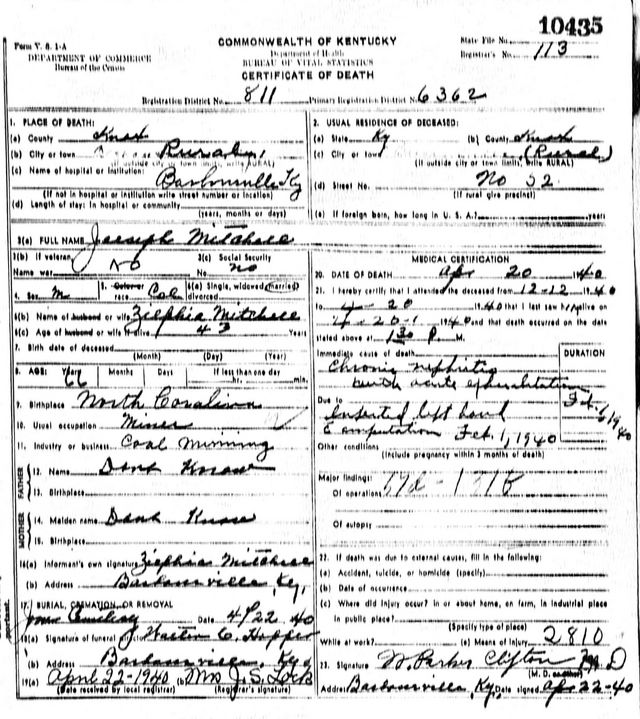 10435
Form V. S. 1-A
DEPARTMENT OF COMMERCE
Bureau of the Census
COMMONWEALTH OF KENTUCKY
Department of Health
BUREAU OF VITAL STATISTICS
CERTIFICATE OF DEATH
State File No.
Registrar's No. 113
Registration District No. 811 Primary Registration District No. 6362
1. PLACE OF DEATH:
(a) County Knox
(b) City or town Rural
(If outside city or town limits, write RURAL)
(c) Name of hospital or institution: Barbourville Ky
(If not in hospital or institution write street number or location)
(d) Length of stay: In hospital or community
(years, months or days)
2. USUAL RESIDENCE OF DECEASED:
(a) State Ky (b) County Knox
(c) City or town (Rural)
(If outside city or town limits, write RURAL)
(d) Street No. No 52
(If rural give precinct)
(e) If foreign born, how long in U. S. A.? years
3(a) FULL NAME Joeseph Mitchell
3(b) If veteran, Name war no 3(c) Social Security No. no
4. Sex M 5. Color or race Col 6(a) Single, widowed, married, divorced
6(b) Name of husband or wife Ziephia Mitchell
6(c) Age of husband or wife if alive 43 Years
7. Birth date of deceased
(Month) (Day) (Year)
8. AGE: Years 66 Months Days If less than one day hr. min.
9. Birthplace North Coralina
10. Usual occupation Miner
11. Industry or business Coal Minning
FATHER
12. Name Dont Know
13. Birthplace
MOTHER
14. Maiden name Dont Know
15. Birthplace
16(a) Informant's own signature Ziephia Mitchell
(b) Address Barbourville, Ky.
17. BURIAL, CREMATION, OR REMOVAL
Cemetery Date 4/22 40
18(a) Signature of funeral director J Walter C. Hopper
(b) Address Barbourville, Ky
19(a) April 22-1940 (b) Mrs J. S. Lock
(Date received by local registrar) (Registrar's signature)
MEDICAL CERTIFICATION
20. DATE OF DEATH Apr 20 1940
21. I hereby certify that I attended the deceased from 12-12 1940
to 4-20 1940 that I last saw him alive on
4-20- 1940 and that death occurred on the date
stated above at 1:30 P. M.
Immediate cause of death
DURATION
Chronic nephritis
with acute
Due to
left hand
Feb. 1, 1940
Other conditions
(Include pregnancy within 3 months of death)
Major findings:
Of operations 131B
Of autopsy
22. If death was due to external causes, fill in the following:
(a) Accident, suicide, or homicide (specify)
(b) Date of occurrence
(c) Where did injury occur? In or about home, on farm, in industrial place
in public place?
(Specify type of place)
While at work? (e) Means of Injury 2810
23. Signature W. Parker Clifton M.D
(M. D. or other)
Address Barbourville, Ky. Date signed Apr 22-40